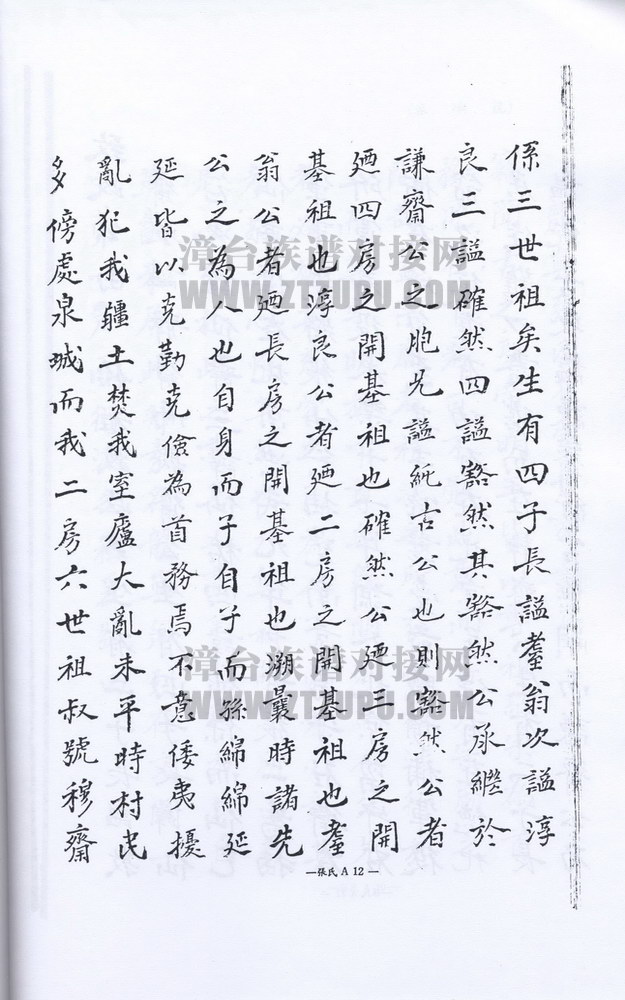 係三世祖矣生有四子長謚耋翁次謚淳
良三謚確然四謚豁然其豁然公承繼於
謙齋公之胞兄謚純古公也則豁然公者
廼四房之開基祖也確然公廼三房之開
基祖也淳良公者廼二房之開基祖也耋
翁公者廼長房之開基祖也溯曩時諸先
公之為人也自身而子自子而孫綿綿延
延皆以克勤克儉為首務焉不意倭夷擾
亂犯我疆土焚我室廬大亂未平時村民
多傍處泉城而我二房六世祖叔號穆齋
漳台族谱对接网
WWW.ZTZUPU.COM
漳台族谱对接网
WWW.ZTZUPU.COM
—張氏 A 12—